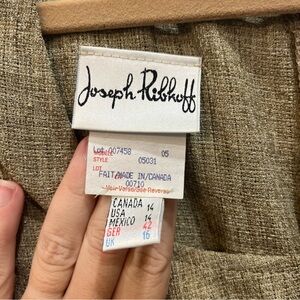 Joseph Ribkoff
Lot A07458 05
STYLE 05031
LOT
FAIT/MADE IN/CANADA
00710
Voir Verso/See Reverse
CANADA 14
USA 14
MEXICO 14
GER 42
UK 16